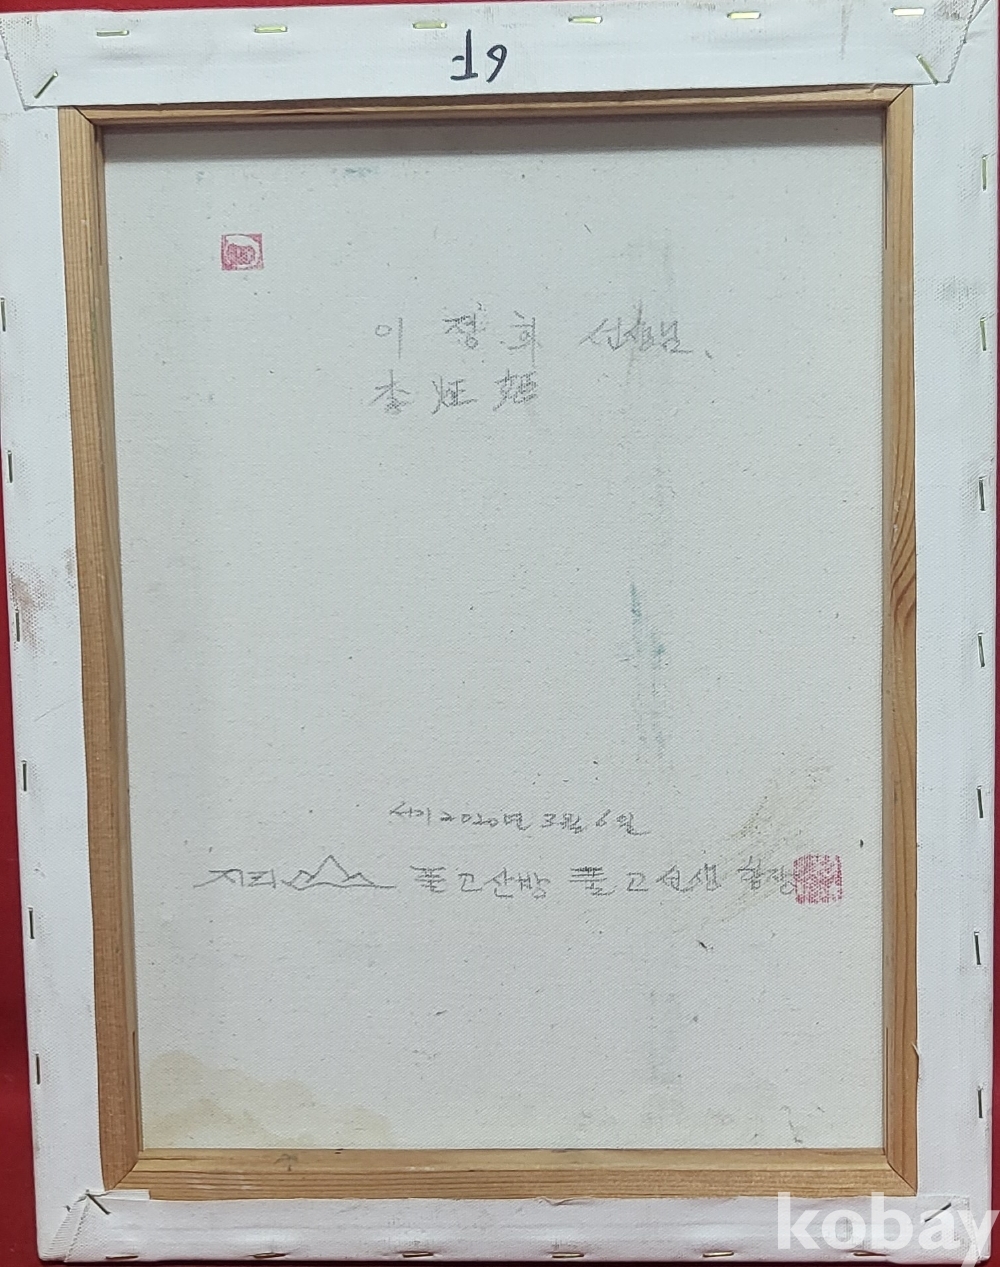 6F
이 정 희 선생님、
李 炡 姬
서기 2020년 3월 6일
지리산 풀고산방 풀고선생 합장
kobay